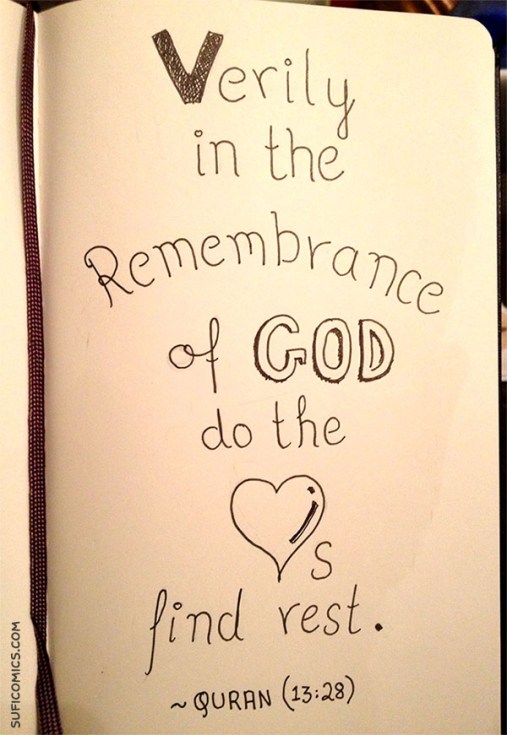 Verily
in the
Remembrance
of GOD
do the
♡s
find rest.
~ QURAN (13:28)
SUFICOMICS.COM